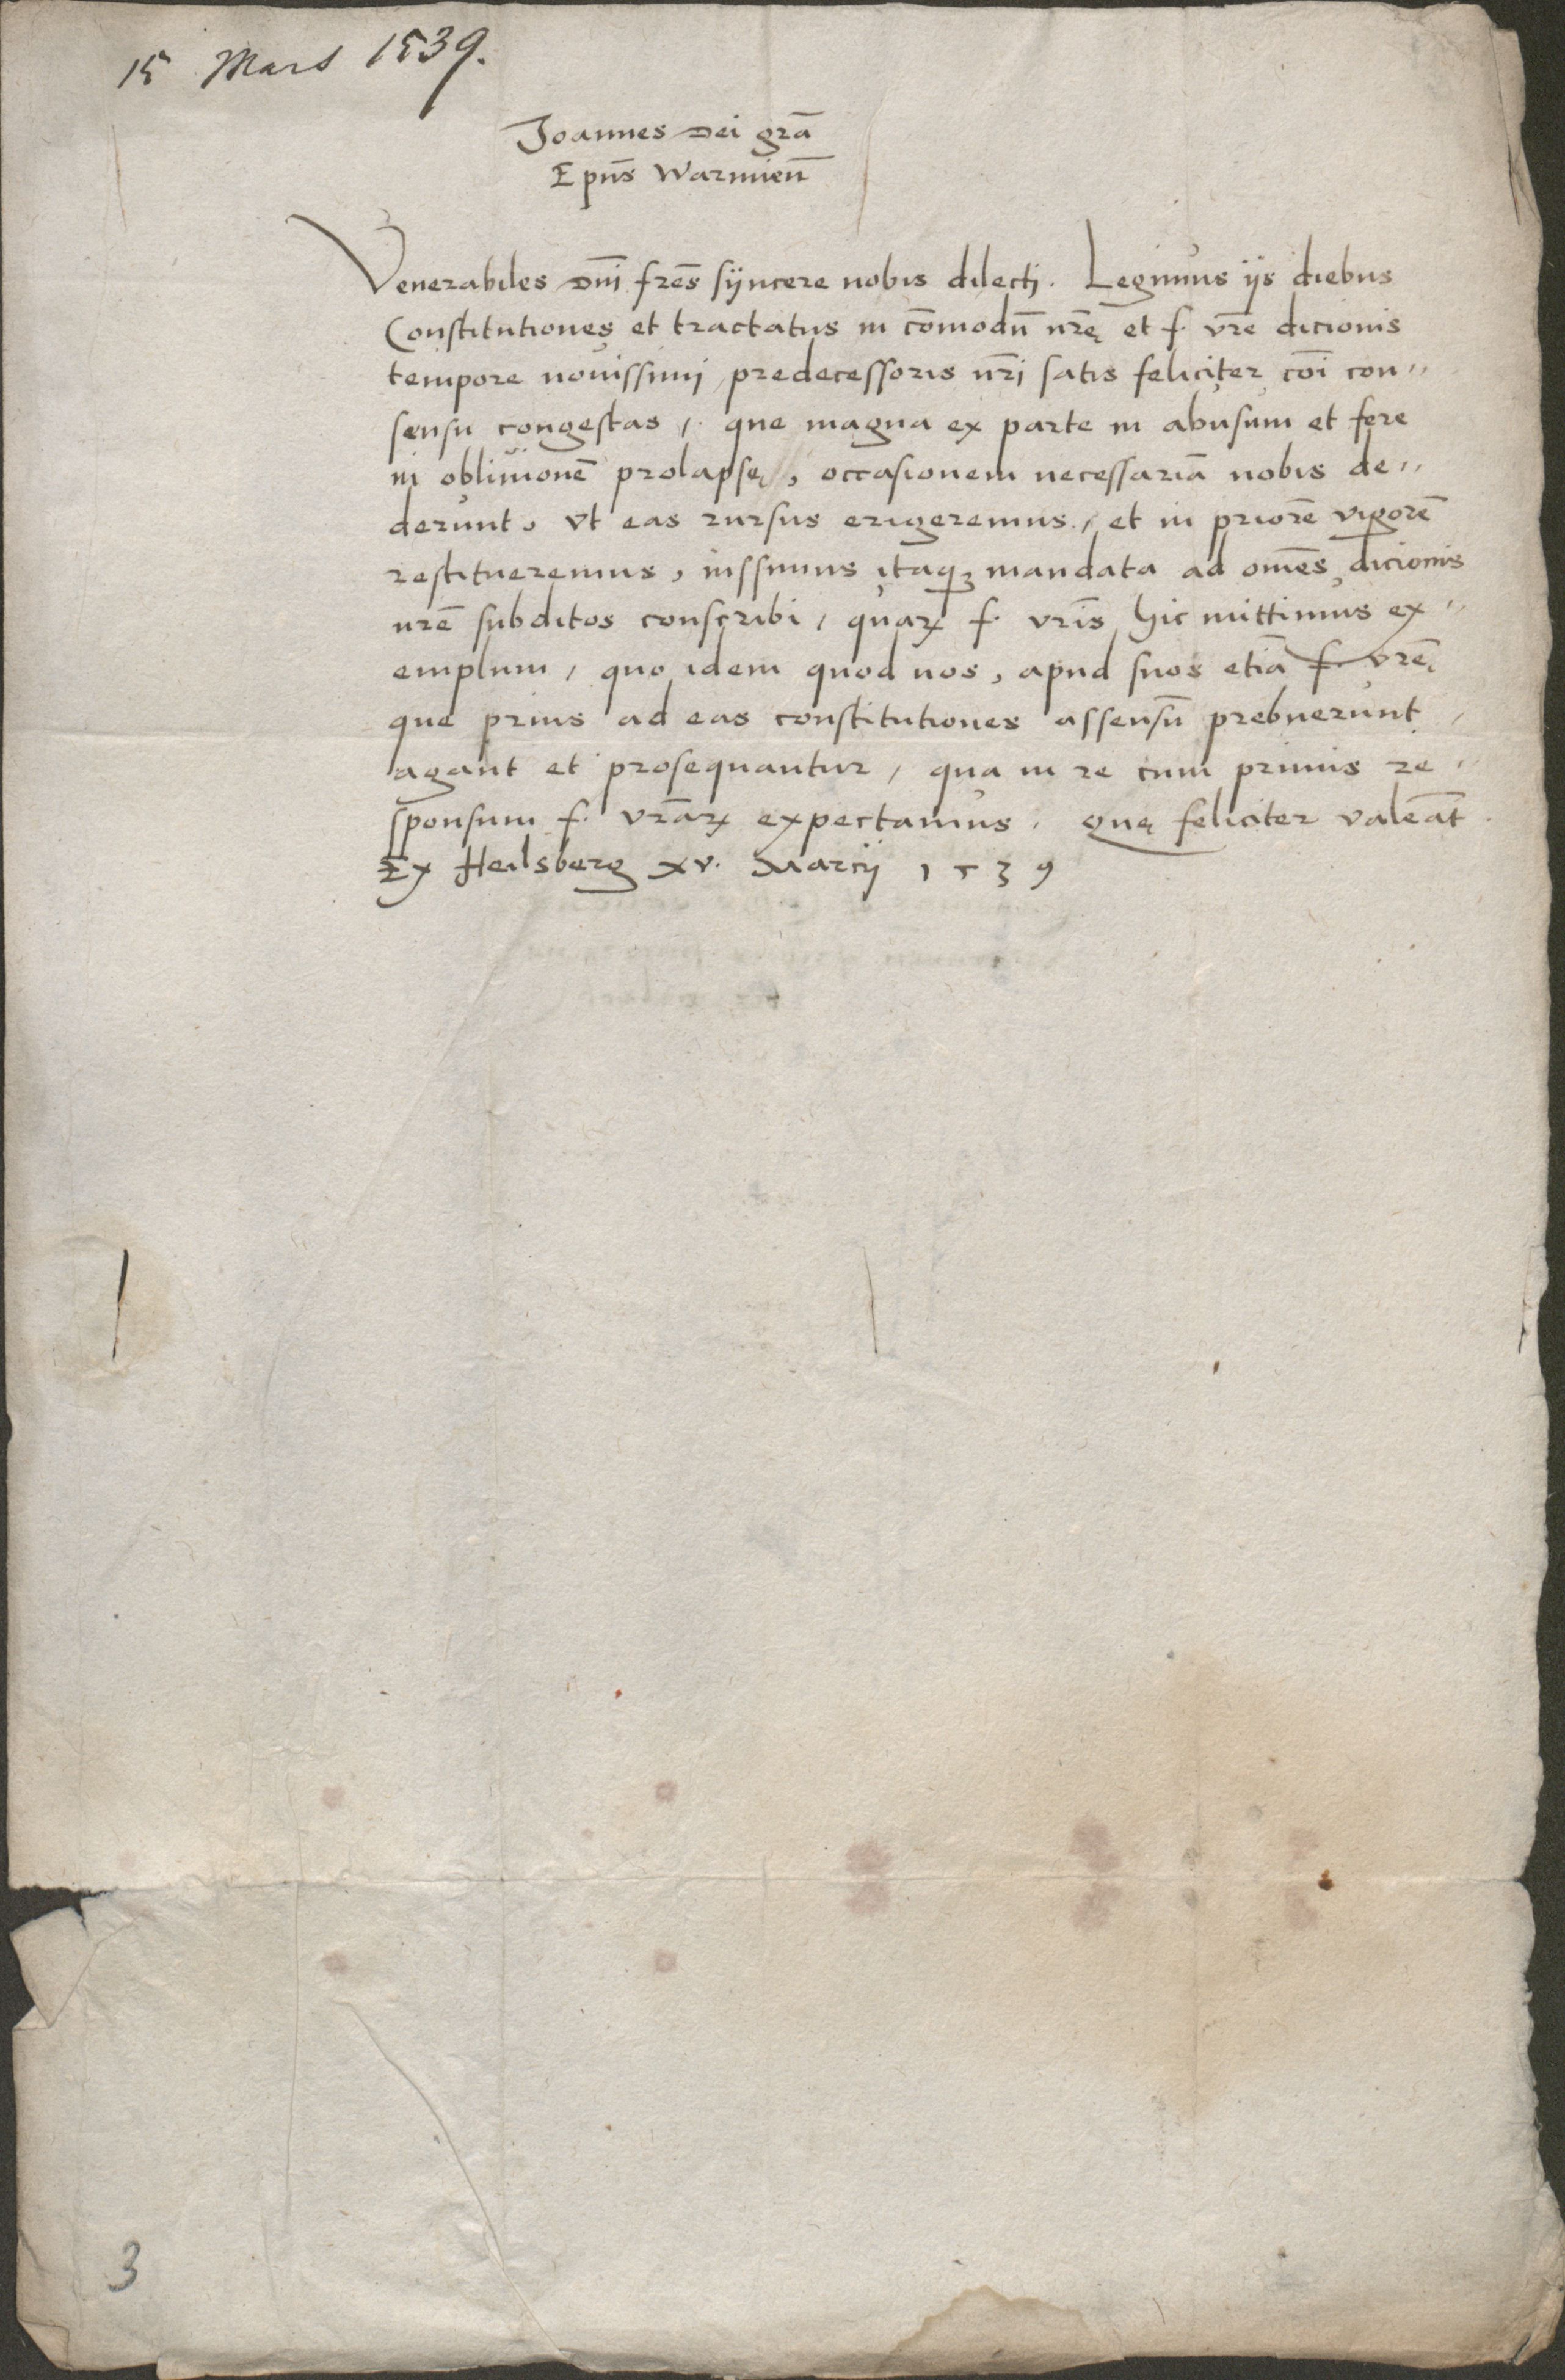 15 Mars 1539.
Joannes Dei gra̅
Epu̅s Warmien̅
Venerabiles Dn̅i fre̅s sÿncere nobis dilecti. Legimus ijs diebus
Constitutiones et tractatus in co̅modu̅ nr̅ę et f. vr̅e dicionis
tempore nouissimi predecessoris nr̅i satis feliciter co̅i con„
sensu congestas, que magna ex parte in abusum et fere
in obliuione̅ prolapsę, occasionem necessaria̅ nobis de„
derunt, vt eas rursus erigeremus, et in priore̅ vigore̅
restitueremus, iussimus itaqꝫ mandata ad om̅es dicionis
nr̅e subditos conscribi, quaꝝ f. vr̅is hic mittimus ex„
emplum, quo idem quod nos, apud suos etia̅ f. vr̅ę
que prius ad eas constitutiones assensu̅ prebuerunt,
agant et prosequantur, qua in re cum primis re„
sponsum f. vr̅aꝝ expectamus. Quę feliciter valea̅t.
Ex Heilsberg xv. Marcij 1539
3